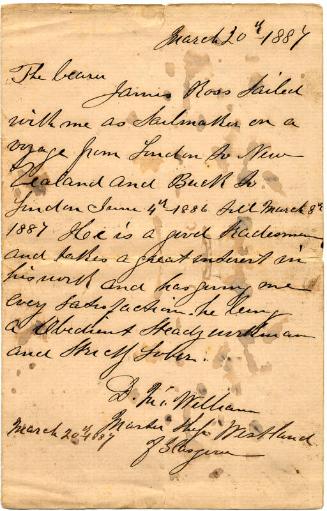 March 20th 1887
The bearer
James Ross Sailed
with me as Sailmaker on a
voyage from London to New
Zealand and Back to
London June 4th 1886 till March 8th
1887 He is a good Tradesman
and takes a great interest in
his work and has giving me
every satisfaction. he being
a Obedient Steady workman
and Strictly Sober.
D. Mc William
Master Ship Westland
of Glasgow
March 20th 1887